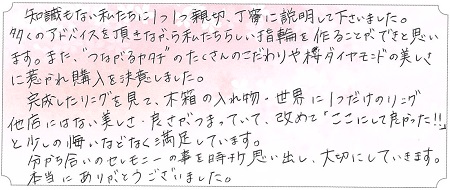 知識もない私たちに1つ1つ親切、丁寧に説明して下さいました。
多くのアドバイスを頂きながら私たちらしい指輪を作ることができたと思い
ます。また、"つながるカタチ"のたくさんのこだわりや桜ダイヤモンドの美しさ
に惹かれ購入を決意しました。
完成したリングを見て、木箱の入れ物・世界に1つだけのリング
他店にはない美しさ・良さがつまっていて、改めて「ここにして良かった!!」
と少しの悔いなどなく満足しています。
分かち合いのセレモニーの事を時々思い出し、大切にしていきます。
本当にありがとうございました。